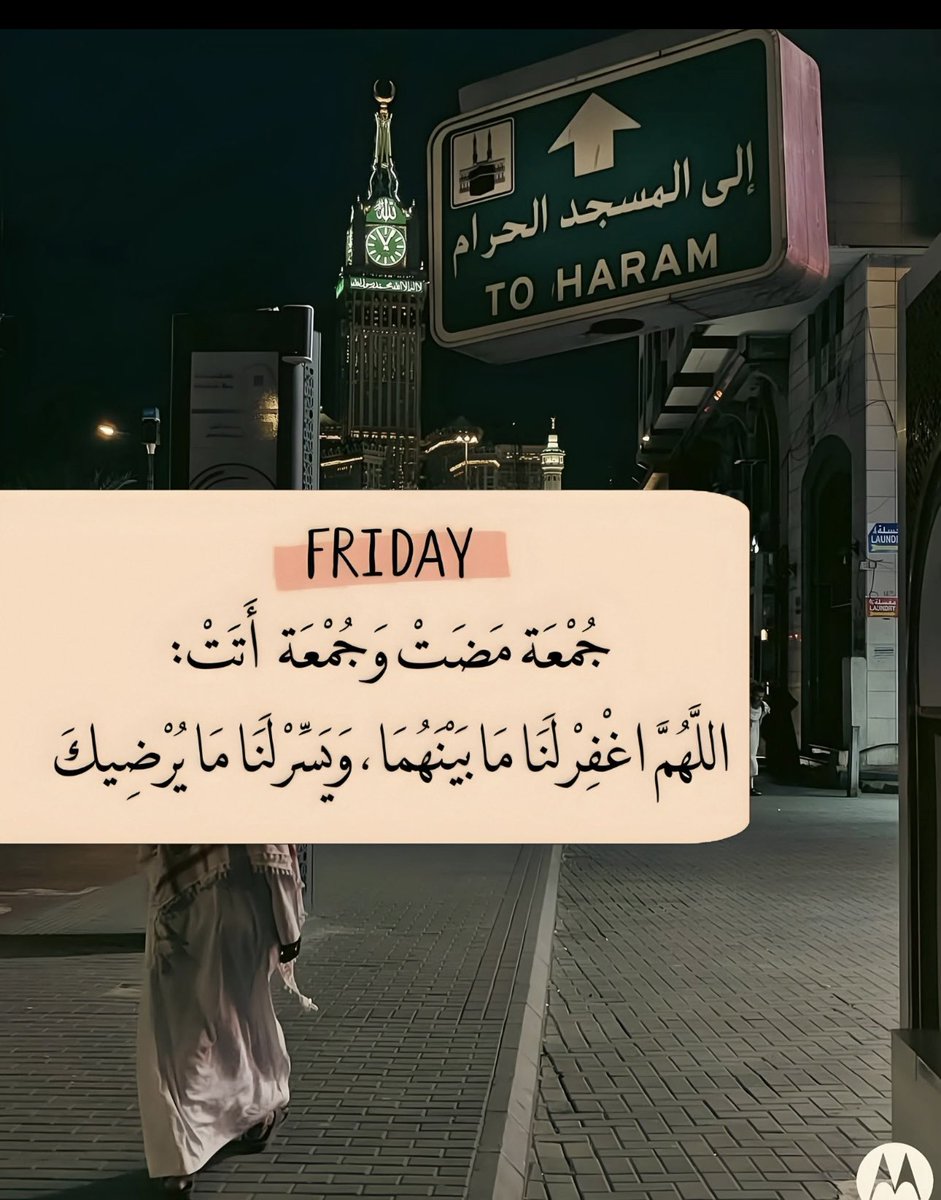 إلى المسجد الحرام
TO HARAM
FRIDAY
جُمْعَة مَضَتْ وَجُمْعَة أَتَتْ:
اللَّهُمَّ اغْفِرْ لَنَا مَا بَيْنَهُمَا، وَيَسِّرْ لَنَا مَا يُرْضِيكَ
مغسلة
LAUNDRY